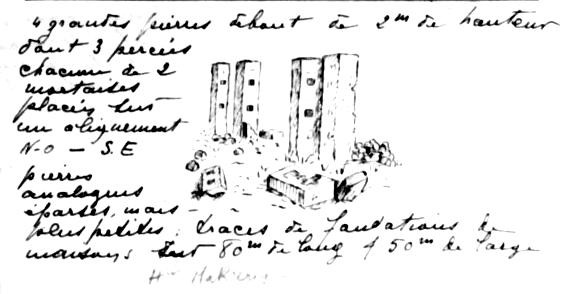 4 grandes pierres debout de 2m de hauteur
dont 3 percées
chacune de 2
mortaises
placées sur
un alignement
N-O — S.E
pierres
analogues
éparses, mais
plus petites; traces de fondations de
maisons; sur 80m de long / 50m de large
Hr